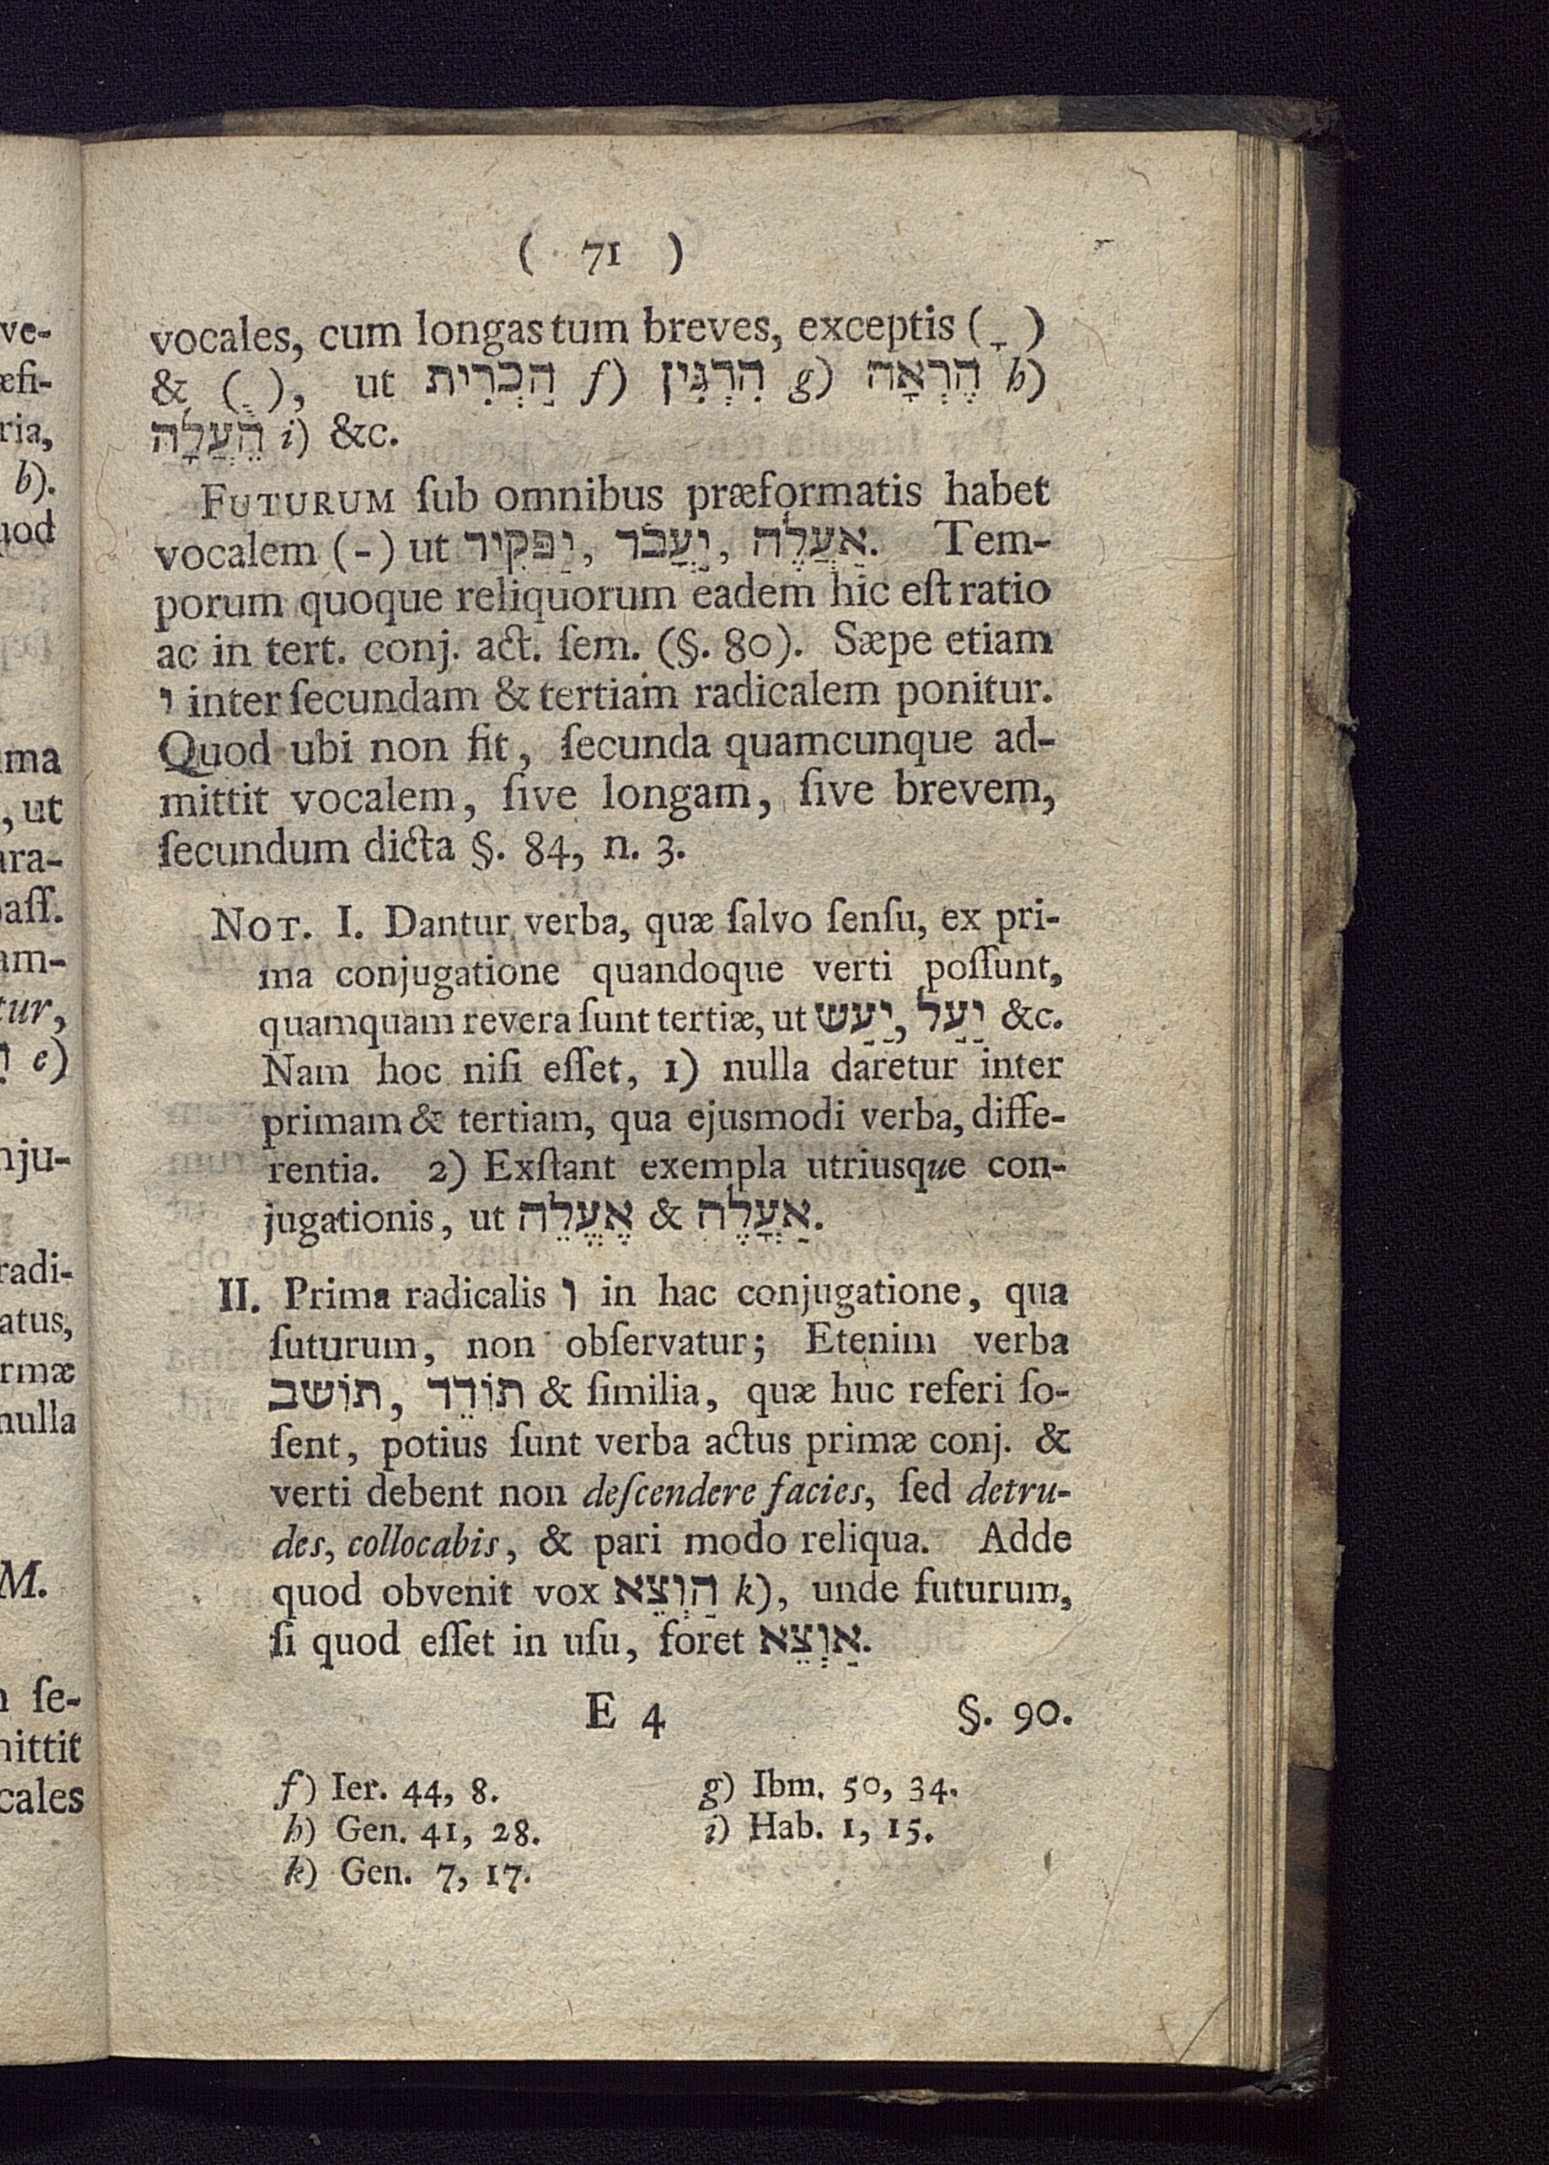 ( 71 )
vocales, cum longas tum breves, exceptis ( ָ )
& ( ֻ ), ut הַכְרִית f) הִרְגִּין g) הֶרְאָה h)
הֵעֲלָה i) &c.
FUTURUM ſub omnibus præformatis habet
vocalem (-) ut יַפְּקִיר, יַעֲבֹר, אַעֲלֶה. Tem-
porum quoque reliquorum eadem hic eſt ratio
ac in tert. conj. act. ſem. (§. 80). Sæpe etiam
י inter ſecundam & tertiam radicalem ponitur.
Quod ubi non fit, ſecunda quamcunque ad-
mittit vocalem, ſive longam, ſive brevem,
ſecundum dicta §. 84, n. 3.
NOT. I. Dantur verba, quæ ſalvo ſenſu, ex pri-
ma conjugatione quandoque verti poſſunt,
quamquam revera ſunt tertiæ, ut יַעַל, יַעַש &c.
Nam hoc niſi eſſet, 1) nulla daretur inter
primam & tertiam, qua ejusmodi verba, diffe-
rentia. 2) Exſtant exempla utriusque con-
jugationis, ut אֶעֱלֵה & אַעֲלֶה.
II. Prima radicalis ו in hac conjugatione, qua
ſuturum, non obſervatur; Etenim verba
תוֹרֵד, תוֹשב & ſimilia, quæ huc referi ſo-
ſent, potius ſunt verba actus primæ conj. &
verti debent non deſcendere facies, ſed detru-
des, collocabis, & pari modo reliqua. Adde
quod obvenit vox הַוְצֵא k), unde futurum,
ſi quod eſſet in uſu, foret אַוְצֵא.
E 4 §. 90.
f) Ier. 44, 8. g) Ibm. 50, 34.
h) Gen. 41, 28. i) Hab. 1, 15.
k) Gen. 7, 17.